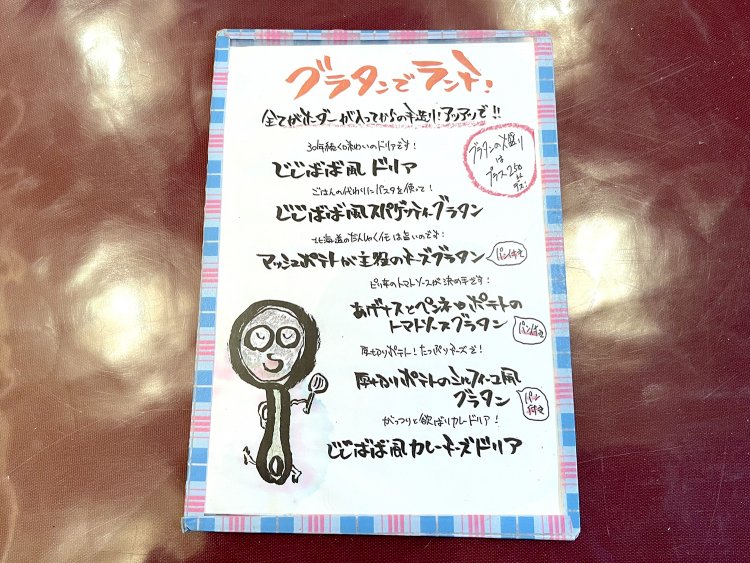 グラタンでランチ!
全てがオーダーが入ってからの手造り!アツアツで!!
グラタンの大盛り
は
プラス250
円
です!
30年続く味わいのドリアです!
じじばば風ドリア
ごはんの代わりにパスタを使って!
じじばば風スパゲッティーグラタン
北海道のだんしゃく伝は旨いのです!
マッシュポテトが主役のチーズグラタン
パン付き
ピリ辛のトマトソースが決め手です!
あげナスとペンネとポテトの
トマトソースグラタン
パン付き
厚切りポテト!たっぷりチーズで!
厚切りポテトのミルフィーユ風
グラタン
パン
付き
がっつりと欲ばりカレードリア!
じじばば風カレーチーズドリア